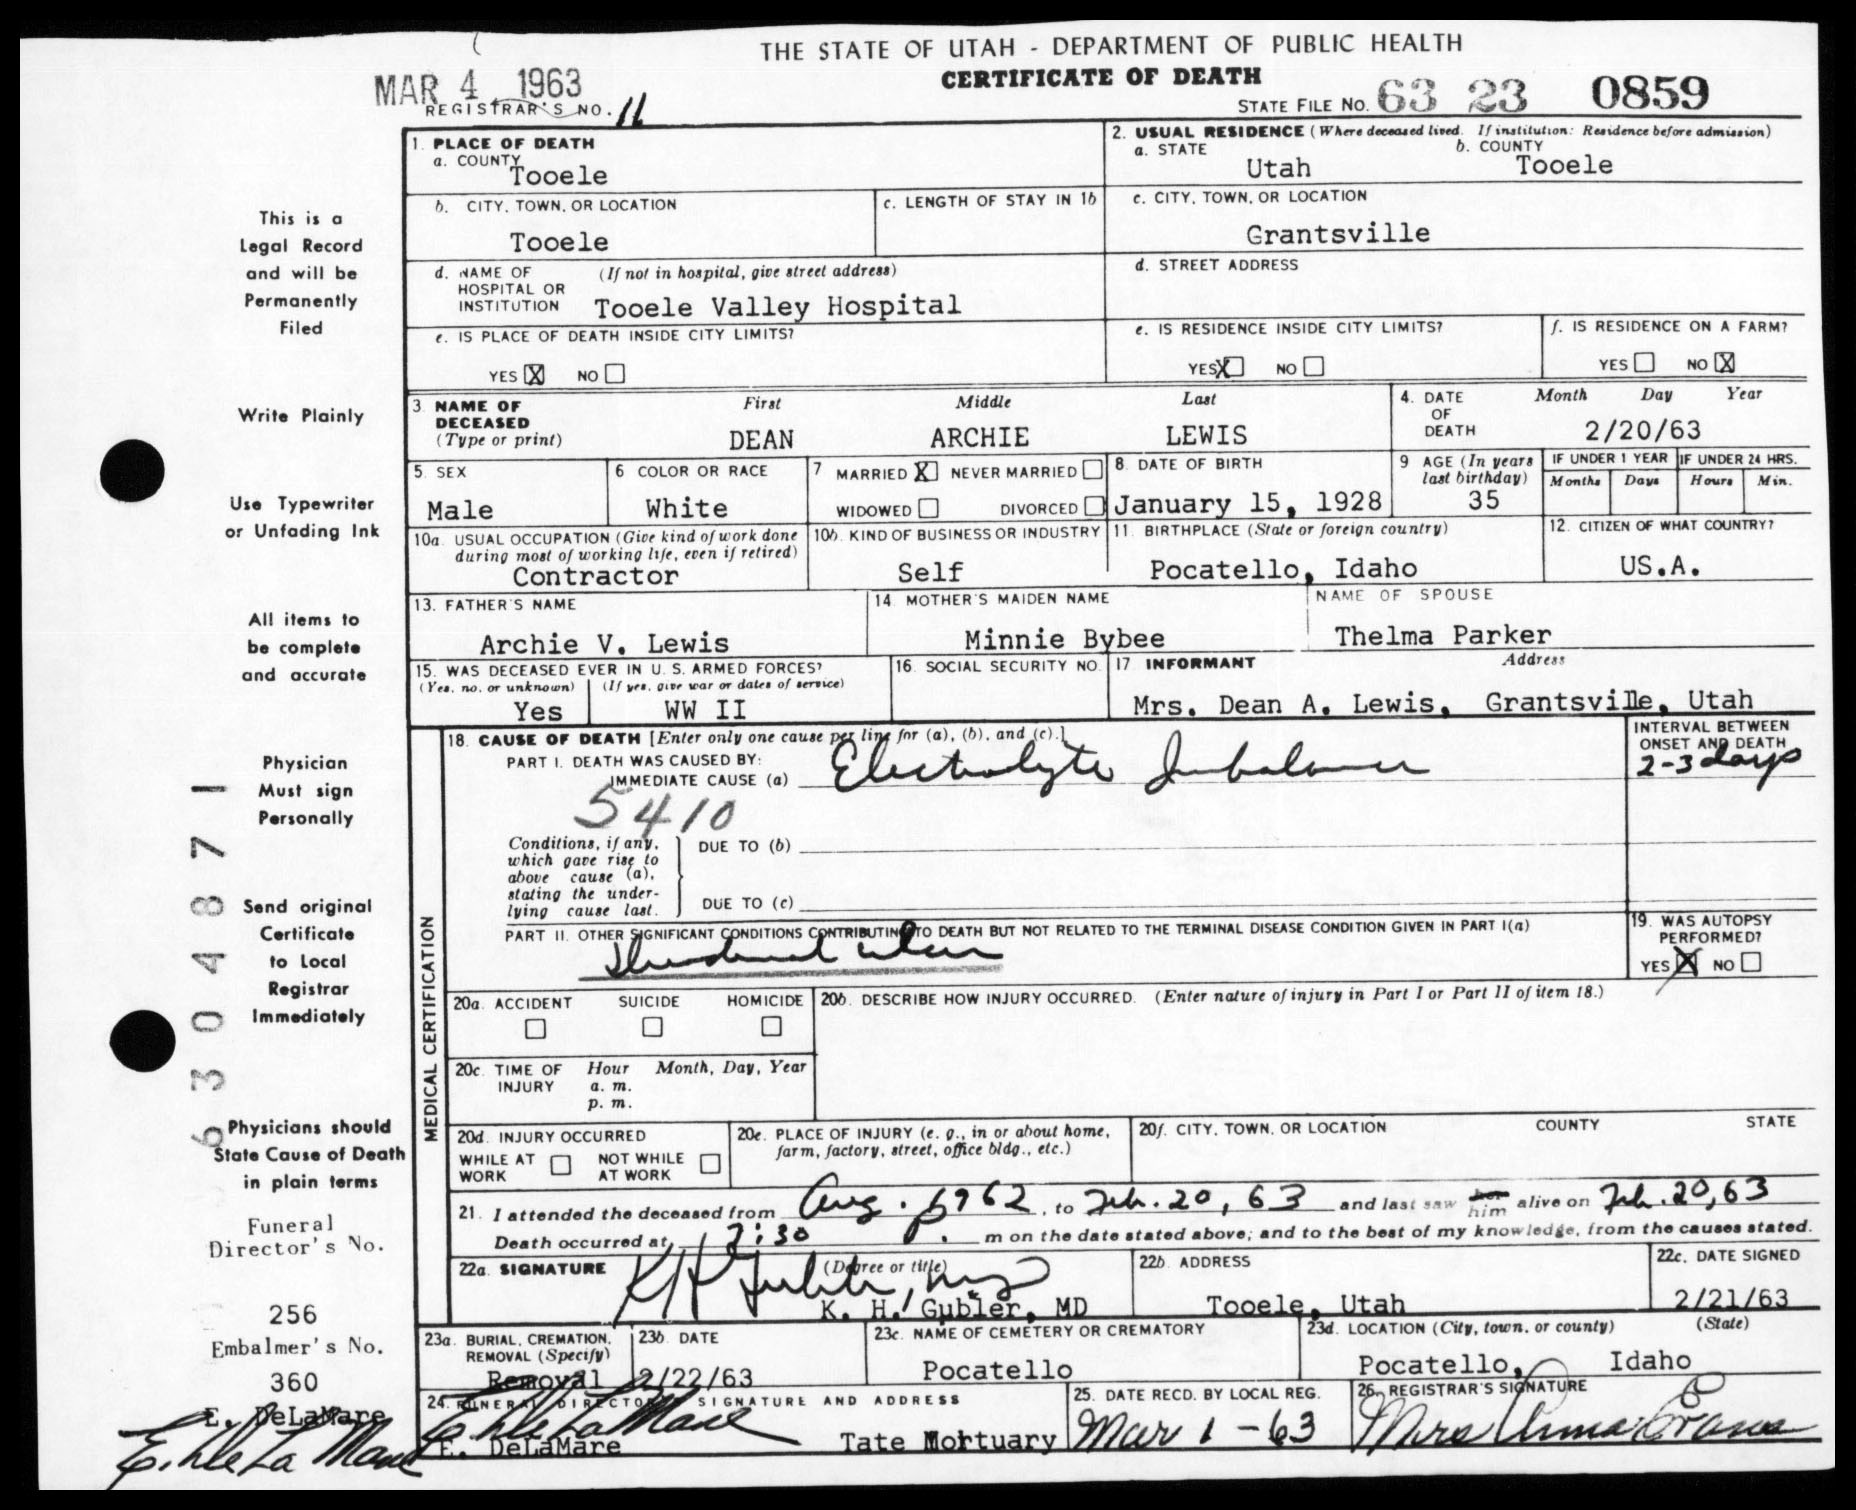 THE STATE OF UTAH - DEPARTMENT OF PUBLIC HEALTH
CERTIFICATE OF DEATH
MAR 4 1963
REGISTRAR'S NO. 11
STATE FILE NO. 63 23 0859
1. PLACE OF DEATH
a. COUNTY
Tooele
2. USUAL RESIDENCE (Where deceased lived. If institution: Residence before admission)
a. STATE b. COUNTY
Utah Tooele
b. CITY, TOWN, OR LOCATION
Tooele
c. LENGTH OF STAY IN 1b
c. CITY, TOWN, OR LOCATION
Grantsville
d. NAME OF HOSPITAL OR INSTITUTION (If not in hospital, give street address)
Tooele Valley Hospital
d. STREET ADDRESS
e. IS PLACE OF DEATH INSIDE CITY LIMITS?
YES X NO
e. IS RESIDENCE INSIDE CITY LIMITS?
YES X NO
f. IS RESIDENCE ON A FARM?
YES NO X
3. NAME OF DECEASED (Type or print)
First Middle Last
DEAN ARCHIE LEWIS
4. DATE OF DEATH Month Day Year
2/20/63
5. SEX
Male
6 COLOR OR RACE
White
7 MARRIED X NEVER MARRIED
WIDOWED DIVORCED
8. DATE OF BIRTH
January 15, 1928
9 AGE (In years last birthday)
35
IF UNDER 1 YEAR IF UNDER 24 HRS.
Months Days Hours Min.
10a. USUAL OCCUPATION (Give kind of work done during most of working life, even if retired)
Contractor
10b. KIND OF BUSINESS OR INDUSTRY
Self
11. BIRTHPLACE (State or foreign country)
Pocatello, Idaho
12. CITIZEN OF WHAT COUNTRY?
US.A.
13. FATHER'S NAME
Archie V. Lewis
14. MOTHER'S MAIDEN NAME
Minnie Bybee
NAME OF SPOUSE
Thelma Parker
15. WAS DECEASED EVER IN U. S. ARMED FORCES?
(Yes, no, or unknown) (If yes, give war or dates of service)
Yes WW II
16. SOCIAL SECURITY NO.
17. INFORMANT Address
Mrs. Dean A. Lewis, Grantsville, Utah
18. CAUSE OF DEATH [Enter only one cause per line for (a), (b), and (c).]
PART I. DEATH WAS CAUSED BY:
IMMEDIATE CAUSE (a) Electrolyte Imbalance
INTERVAL BETWEEN ONSET AND DEATH
2-3 days
5410
Conditions, if any, which gave rise to above cause (a), stating the underlying cause last.
DUE TO (b)
DUE TO (c)
PART II. OTHER SIGNIFICANT CONDITIONS CONTRIBUTING TO DEATH BUT NOT RELATED TO THE TERMINAL DISEASE CONDITION GIVEN IN PART I(a)
Duodenal ulcer
19. WAS AUTOPSY PERFORMED?
YES X NO
MEDICAL CERTIFICATION
20a. ACCIDENT SUICIDE HOMICIDE
20b. DESCRIBE HOW INJURY OCCURRED. (Enter nature of injury in Part I or Part II of item 18.)
20c. TIME OF INJURY Hour Month, Day, Year
a. m.
p. m.
20d. INJURY OCCURRED
WHILE AT WORK NOT WHILE AT WORK
20e. PLACE OF INJURY (e. g., in or about home, farm, factory, street, office bldg., etc.)
20f. CITY, TOWN, OR LOCATION COUNTY STATE
21. I attended the deceased from Aug. 1962, to Feb. 20, 63 and last saw her him alive on Feb. 20, 63
Death occurred at 7:30 P. m on the date stated above; and to the best of my knowledge, from the causes stated.
22a. SIGNATURE (Degree or title)
K H Gubler, MD
K. H. Gubler, MD
22b. ADDRESS
Tooele, Utah
22c. DATE SIGNED
2/21/63
23a. BURIAL, CREMATION, REMOVAL (Specify)
Removal
23b. DATE
2/22/63
23c. NAME OF CEMETERY OR CREMATORY
Pocatello
23d. LOCATION (City, town, or county) (State)
Pocatello, Idaho
24. FUNERAL DIRECTOR'S SIGNATURE AND ADDRESS
E. DeLaMare
E. DeLaMare Tate Mortuary
25. DATE RECD. BY LOCAL REG.
Mar 1-63
26. REGISTRAR'S SIGNATURE
Mrs Anna Evans
This is a
Legal Record
and will be
Permanently
Filed
Write Plainly
Use Typewriter
or Unfading Ink
All items to
be complete
and accurate
Physician
Must sign
Personally
Send original
Certificate
to Local
Registrar
Immediately
Physicians should
State Cause of Death
in plain terms
Funeral
Director's No.
256
Embalmer's No.
360
E. DeLaMare
E. DeLaMare
6304871